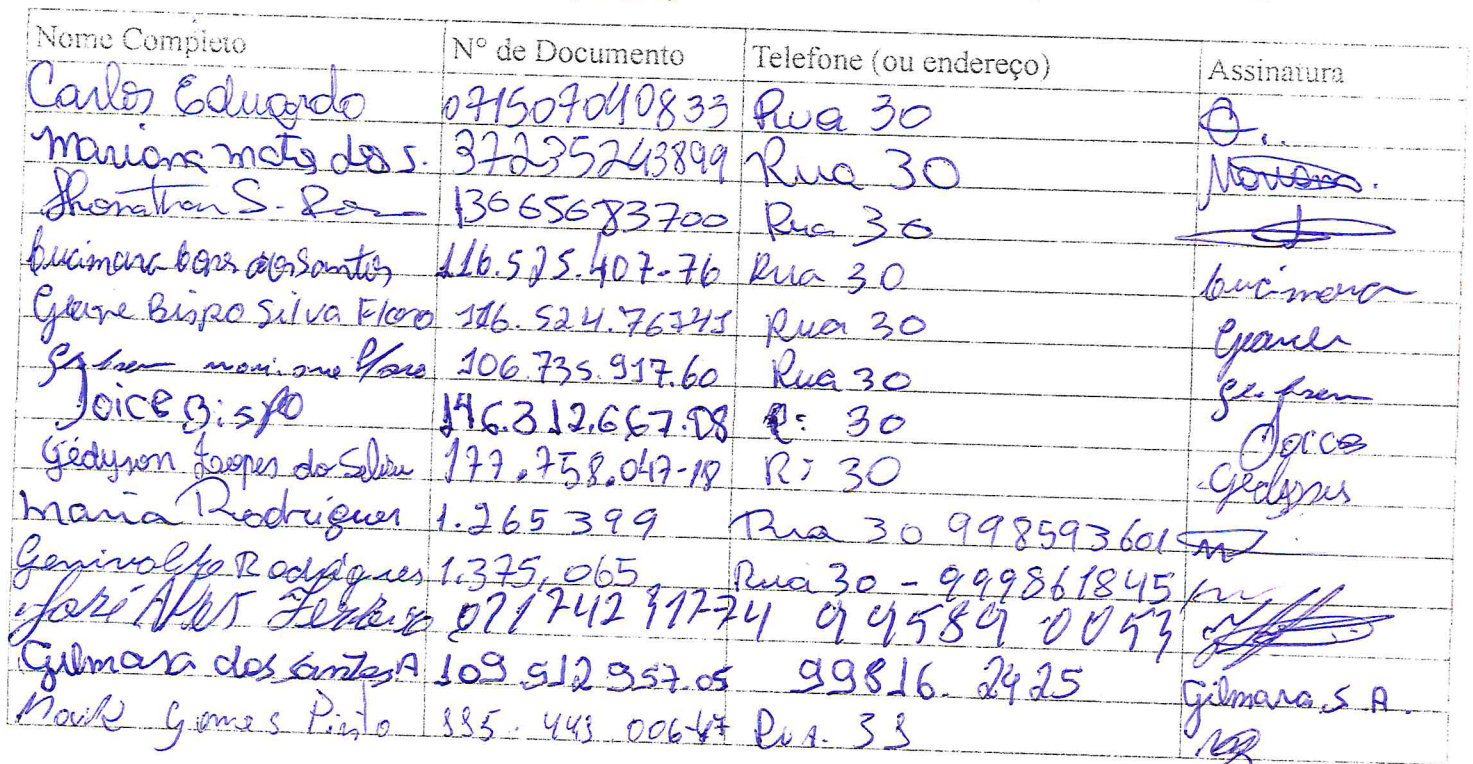 Nome Completo N° de Documento Telefone (ou endereço) Assinatura
Carlos Eduardo 071507040833 Rua 30
Mariana matos dos s. 37235243899 Rua 30 Mariana.
Jhonathan S. 13665683700 Rua 30
Lucimara dos Santos 116.525.407-76 Rua 30 Lucimara
Geane Bispo Silva Floro 116.524.76741 Rua 30 Geane
106.735.917.60 Rua 30
Joice Bispo 146.312.667.08 R: 30 Joice
Gédyson Lopes da Silva 177.758.047-18 R: 30 Gédyson
maria Rodrigues 1.265399 Rua 30 998593601
Genivaldo Rodrigues 1.375,065 Rua 30 - 999861845
José Alves Ferreira 99589 0053
Gilmara dos santos A 109 512 957.05 99816. 2425 Gilmara. S A.
Gomes Pinto 115. 443 006-47 Rua. 31